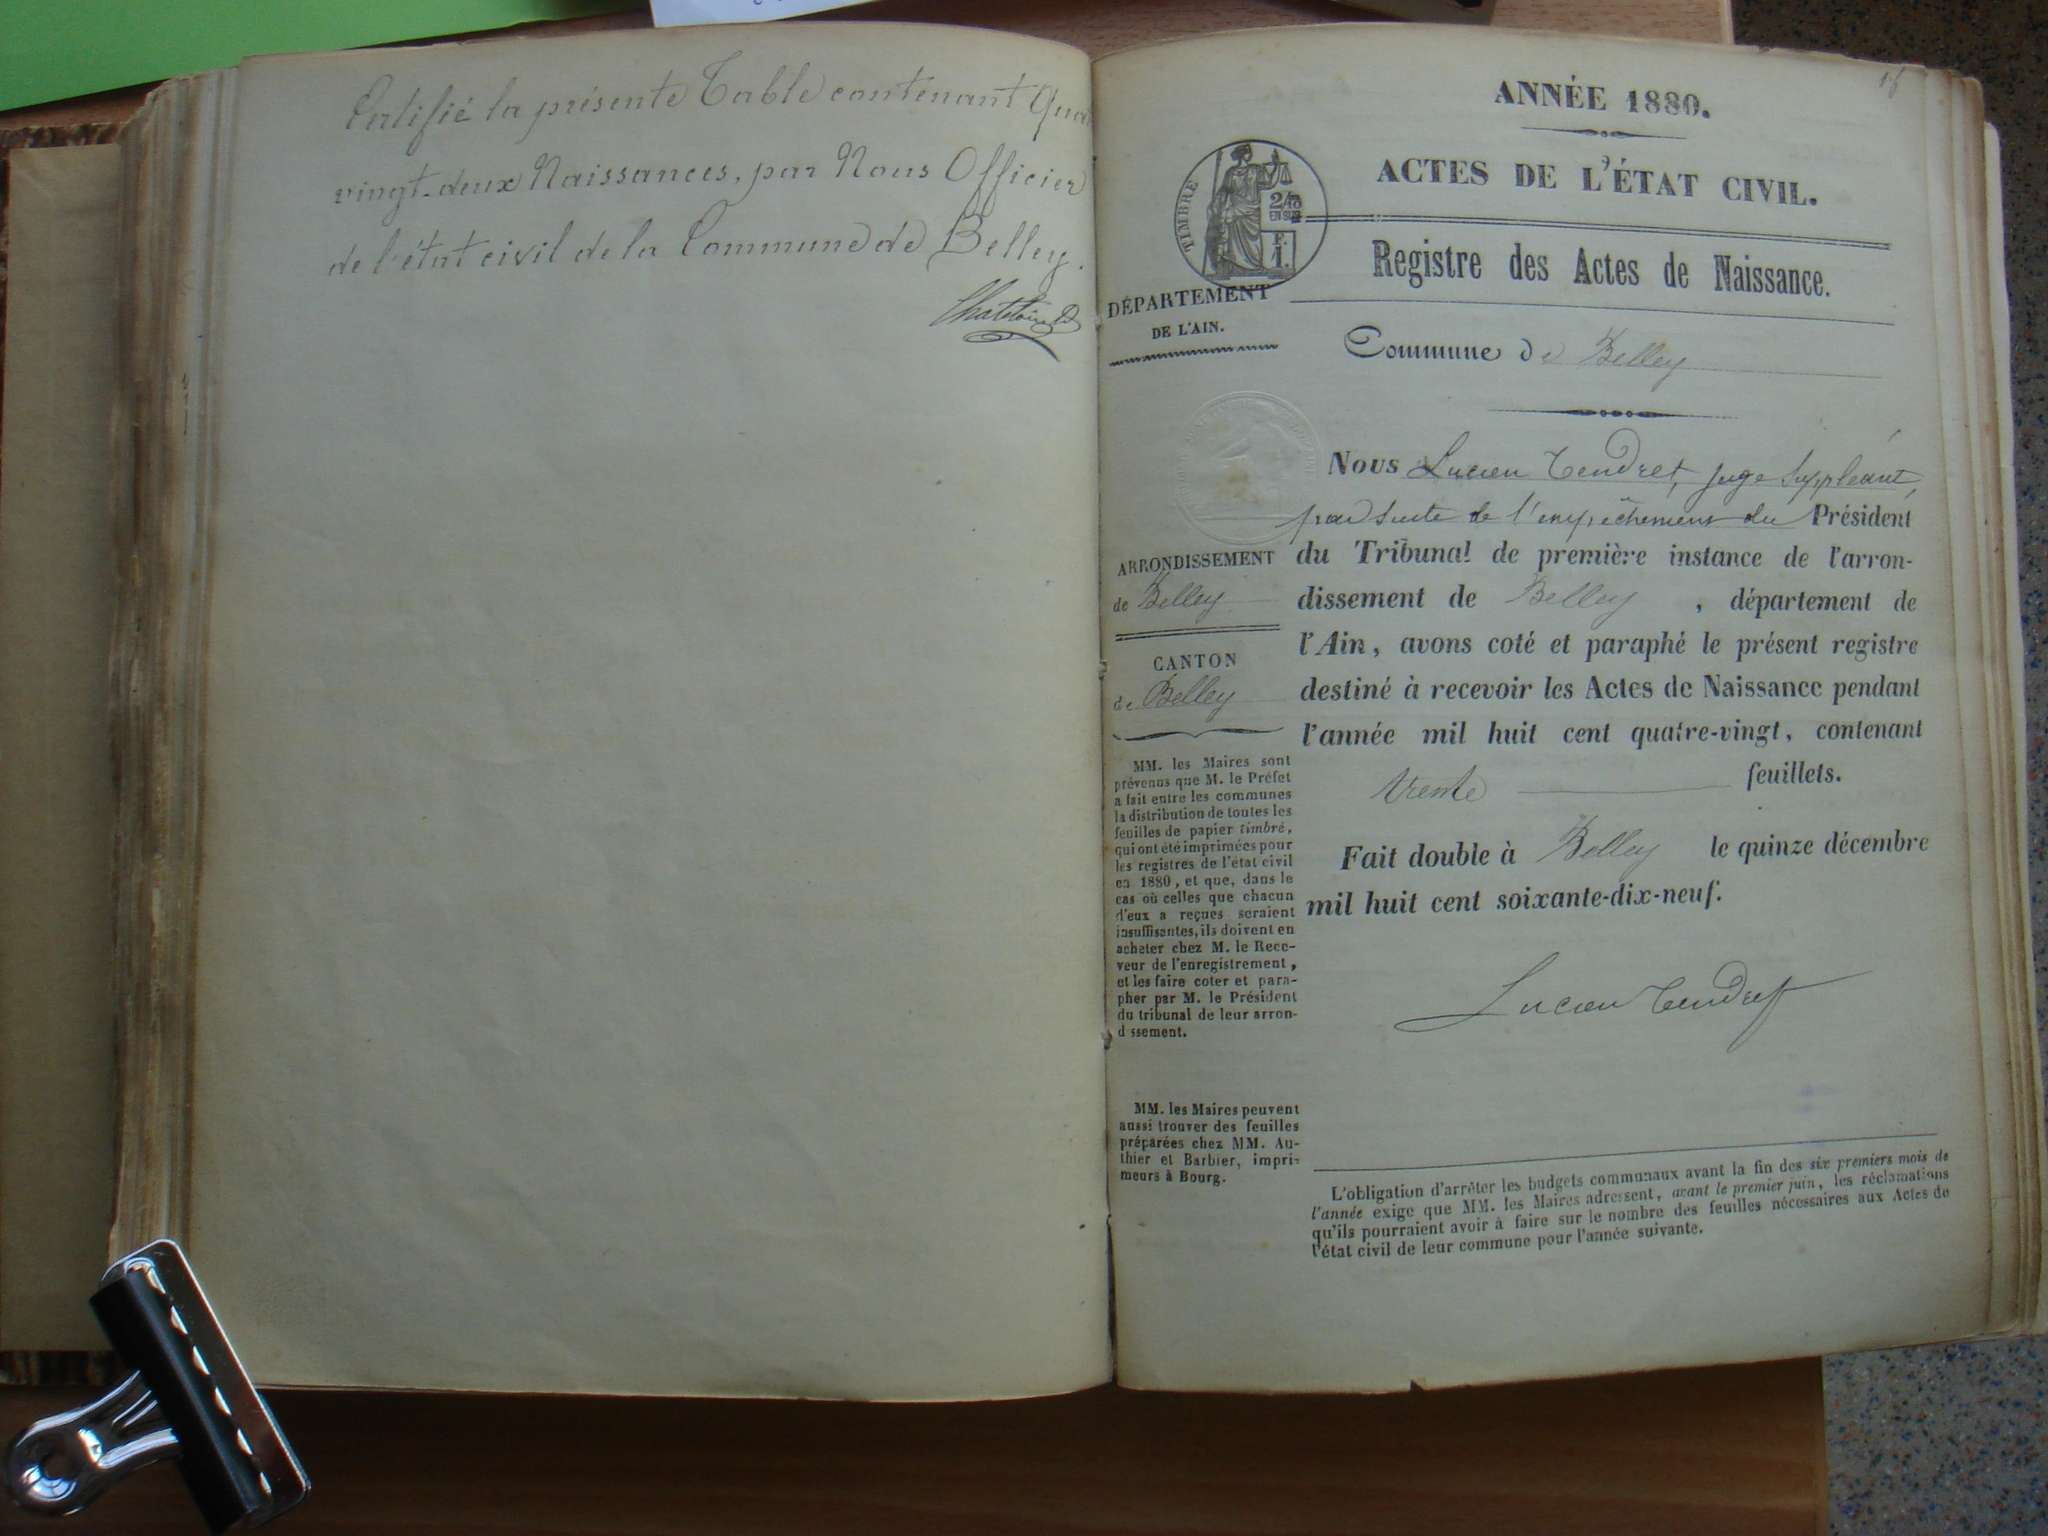 Certifié la présente Table contenant
vingt-deux Naissances, par Nous Officier
de l'état civil de la Commune de Belley.
1f
ANNÉE 1880.
ACTES DE L'ÉTAT CIVIL.
TIMBRE
2/10
EN SUS
F.
1.
Registre des Actes de Naissance.
DÉPARTEMENT
DE L'AIN.
Commune de Belley
Nous Lucien Tendret, juge Suppléant,
par suite de l'empêchement du Président
du Tribunal de première instance de l'arron-
dissement de Belley, département de
l'Ain, avons coté et paraphé le présent registre
destiné à recevoir les Actes de Naissance pendant
l'année mil huit cent quatre-vingt, contenant
trente feuillets.
Fait double à Belley le quinze décembre
mil huit cent soixante-dix-neuf.
Lucien Tendret
ARRONDISSEMENT
de Belley
CANTON
de Belley
MM. les Maires sont
prévenus que M. le Préfet
a fait entre les communes
la distribution de toutes les
feuilles de papier timbré,
qui ont été imprimées pour
les registres de l'état civil
en 1880, et que, dans le
cas où celles que chacun
d'eux a reçues seraient
insuffisantes, ils doivent en
acheter chez M. le Rece-
veur de l'enregistrement,
et les faire coter et para-
pher par M. le Président
du tribunal de leur arron-
d ssement.
MM. les Maires peuvent
aussi trouver des feuilles
préparées chez MM. Au-
thier et Barbier, impri-
meurs à Bourg.
L'obligation d'arrêter les budgets communaux avant la fin des six premiers mois de
l'année exige que MM. les Maires adressent, avant le premier juin, les réclamations
qu'ils pourraient avoir à faire sur le nombre des feuilles nécessaires aux Actes de
l'état civil de leur commune pour l'année suivante.